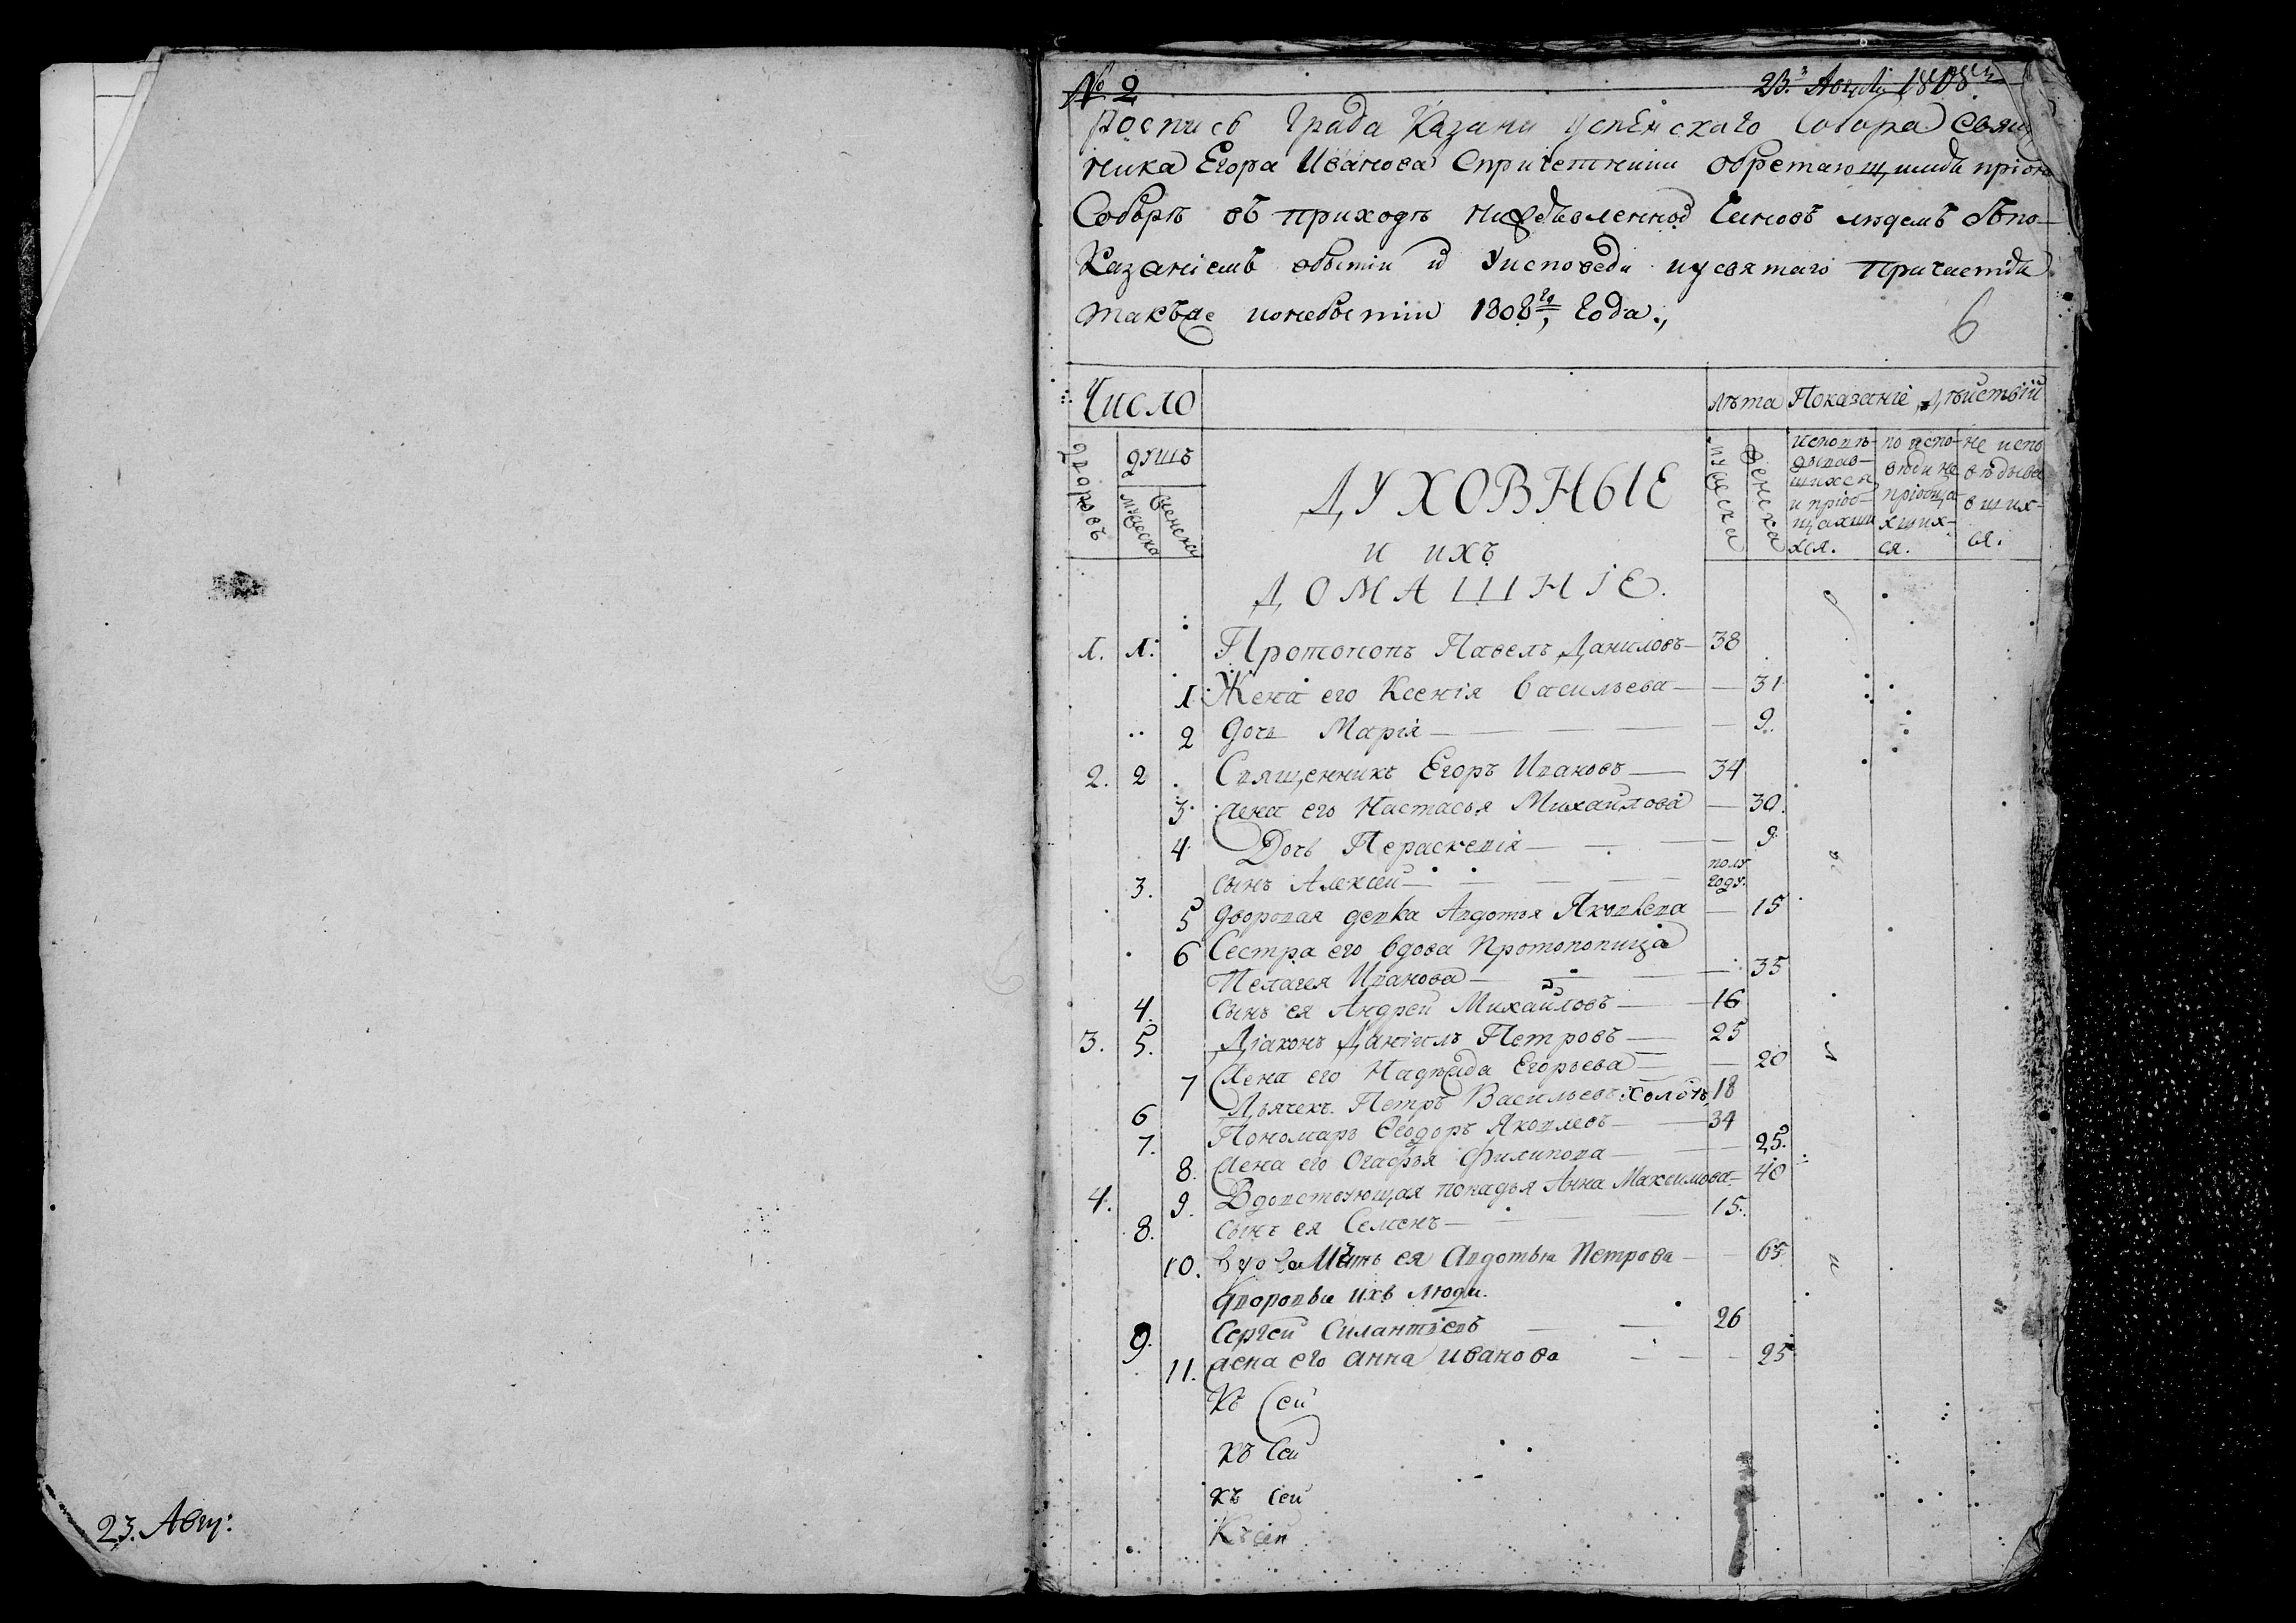 23. Авгу:
№ 2
23. Авгу 1808
роспись Града Казани успенскаго Собора Свящ
ника Егора Иванова Спричетники обретающимися при ономъ
Соборѣ въ приходѣ нижеявленнод Чиновъ людемъ сѣпо-
Казаніемъ обытіи и Уисповеди иусвятаго Причастія
такъже ионебытіи 1808го Года.,
6
Число
лѣта Показаніе дѣйствій
дворовъ
душъ
мужеска
женска
ДУХОВНЫЕ
и ихъ
ДОМАШНІЕ.
мужеска
женска
исповѣ-
дывав-
шихся
и пріоб-
щавши
хся.
по испо-
вѣди не
пріобща
вших-
ся.
не испо
вѣдыва
вших-
ся.
1. 1. Протопопъ Павелъ Даниловъ — 38
1 Жена его Ксенія Васильева — 31
2 дочь Марія — 9.
2. 2 Священникъ Егоръ Ивановъ — 34
3 жена его Настасья Михайлова — 30.
4 Дочь Пераскевія — 9
3. сынъ Алексей — полу году.
5 дворовая девка Авдотья Яковлева — 15
6 Сестра его вдова протопопица
Пелагея Иванова — 35
4. сынъ ея Андрей Михайловъ — 16
3. 5. Діаконъ Даніилъ Петровъ — 25
7 Жена его Надѣжда Егорьева — 20
6 Дьячекъ Петръ Васильевъ холостъ 18
7. Пономарь Ѳеодоръ Яковлевъ — 34
8. жена его Огафья Филипова — 25.
4. 9. Вдовствующая попадья Анна Максимова — 40
8. сынъ ея Семенъ — 15.
10. вдова Мать ея Авдотья Петрова — 65
дворовые ихъ люди.
9. Сергей Силантьевъ — 26
11. жена его анна иванова — 25
Къ Сей
къ Сей
къ сей
Къ сей